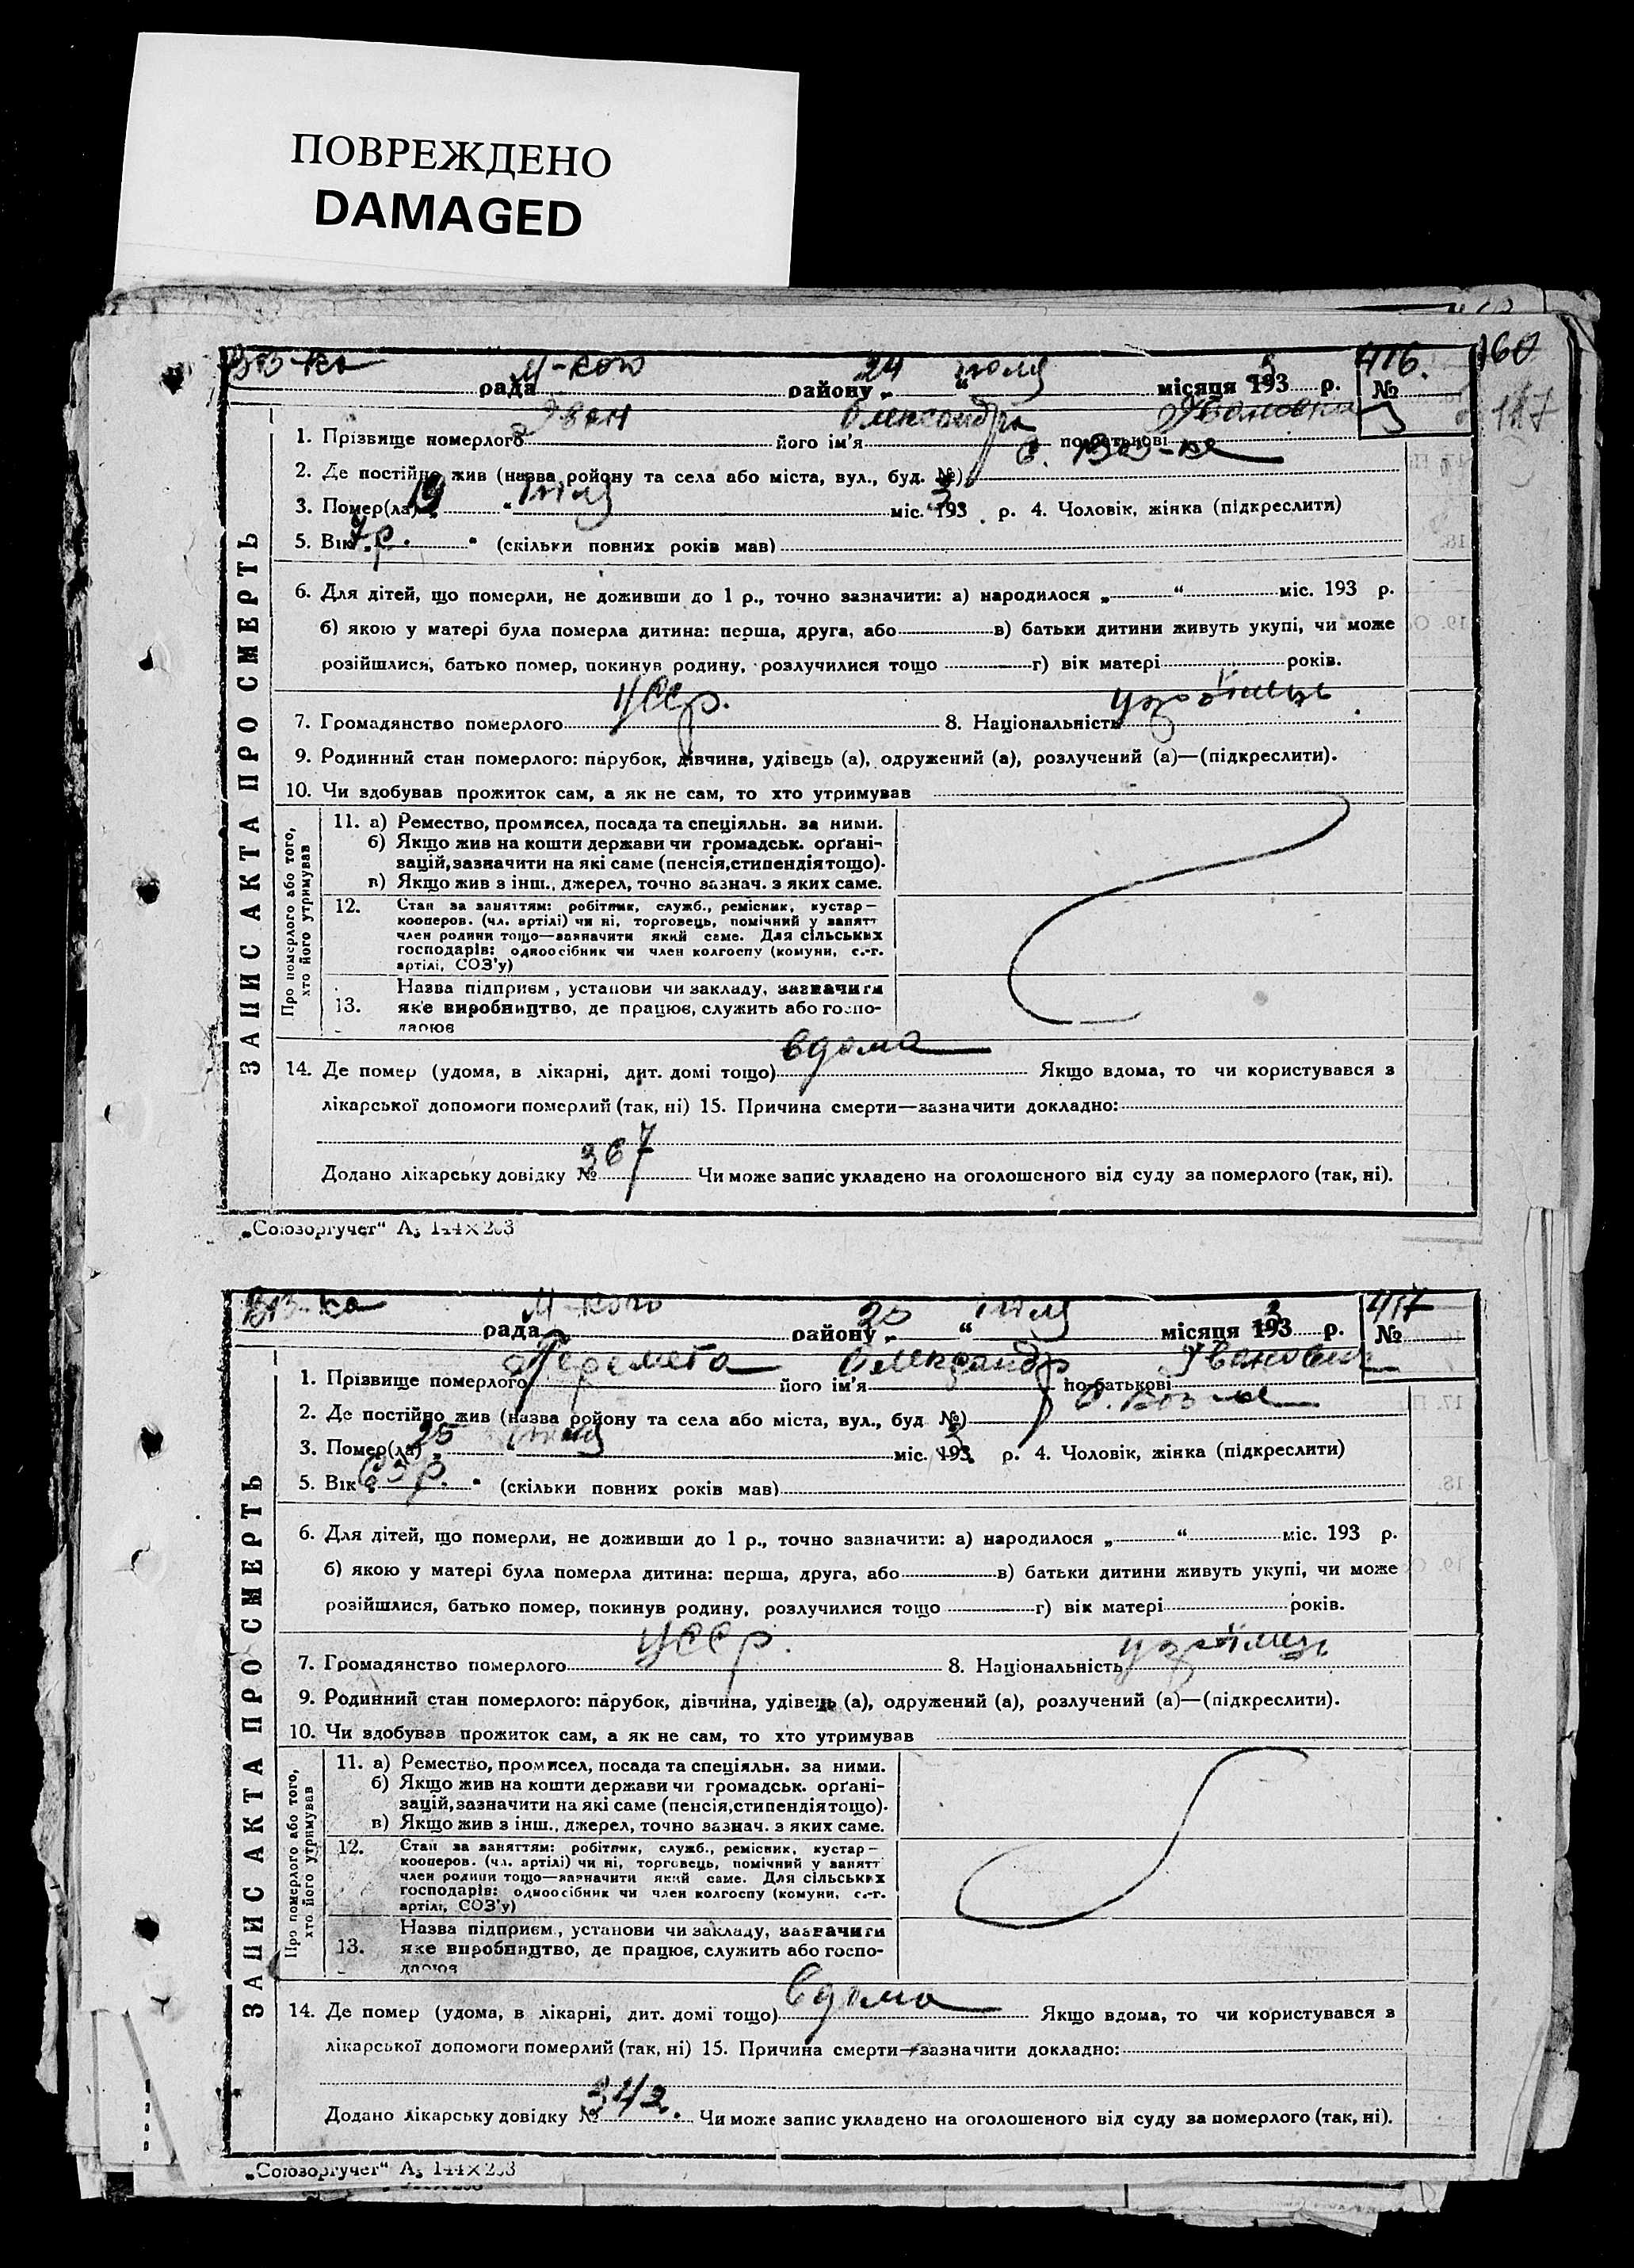 ПОВРЕЖДЕНО
DAMAGED
160
117
ВВ-ка рада М-кого району „ 24 “ июля місяця 193 3 р. № 416.
1. Прізвище померлого Іван його ім'я Олександра по-батькові Івановна
2. Де постійно жив (назва району та села або міста, вул., буд. №)
3. Помер(ла) „ 19 “ міс. 193 3 р. 4. Чоловік, жінка (підкреслити)
5. Вік „ 7 р. “ (скільки повних років мав)
6. Для дітей, що померли, не доживши до 1 р., точно зазначити: а) народилося „ “ міс. 193 р.
б) якою у матері була померла дитина: перша, друга, або в) батьки дитини живуть укупі, чи може
розійшлися, батько помер, покинув родину, розлучилися тощо г) вік матері років.
7. Громадянство померлого УССР. 8. Національність українець
9. Родинний стан померлого: парубок, дівчина, удівець (а), одружений (а), розлучений (а)—(підкреслити).
10. Чи здобував прожиток сам, а як не сам, то хто утримував
ЗАПИС АКТА ПРО СМЕРТЬ
Про померлого або того, хто його утримував
11. а) Ремество, промисел, посада та спеціяльн. за ними.
б) Якщо жив на кошти держави чи громадськ. орґані-
зацій, зазначити на які саме (пенсія, стипендія тощо).
в) Якщо жив з інш., джерел, точно зазнач. з яких саме.
12. Стан за заняттям: робітник, служб., ремісник, кустар—
кооперов. (чл. артілі) чи ні, торговець, помічний у занятт
член родини тощо—зазначити який саме. Для сільських
господарів: одноосібник чи член колгоспу (комуни, с.-г.
артілі, СОЗ'у)
Назва підприєм, установи чи закладу, зазначити
13. яке виробництво, де працює, служить або госпо-
дарює
14. Де помер (удома, в лікарні, дит. домі тощо) вдома Якщо вдома, то чи користувався з
лікарської допомоги померлий (так, ні) 15. Причина смерти—зазначити докладно:
Додано лікарську довідку № 367 Чи може запис укладено на оголошеного від суду за померлого (так, ні).
„Союзоргучет“ А5 144×203
ВВ-ка рада М-кого району „ “ місяця 193 3 р. № 417
1. Прізвище померлого Перемета його ім'я Олександр по-батькові Іванович
2. Де постійно жив (назва району та села або міста, вул., буд №)
3. Помер(ла) „ 25 міс. 193 3 р. 4. Чоловік, жінка (підкреслити)
5. Вік „ 63 р. “ (скільки повних років мав)
6. Для дітей, що померли, не доживши до 1 р., точно зазначити: а) народилося „ “ міс. 193 р.
б) якою у матері була померла дитина: перша, друга, або в) батьки дитини живуть укупі, чи може
розійшлися, батько помер, покинув родину, розлучилися тощо г) вік матері років.
7. Громадянство померлого УССР. 8. Національність українець
9. Родинний стан померлого: парубок, дівчина, удівець (а), одружений (а), розлучений (а)—(підкреслити).
10. Чи здобував прожиток сам, а як не сам, то хто утримував
ЗАПИС АКТА ПРО СМЕРТЬ
Про померлого або того, хто його утримував
11. а) Ремество, промисел, посада та спеціяльн. за ними.
б) Якщо жив на кошти держави чи громадськ. орґані-
зацій, зазначити на які саме (пенсія, стипендія тощо).
в) Якщо жив з інш., джерел, точно зазнач. з яких саме.
12. Стан за заняттям: робітник, служб., ремісник, кустар—
кооперов. (чл. артілі) чи ні, торговець, помічний у занятт
член родини тощо—зазначити який саме. Для сільських
господарів: одноосібник чи член колгоспу (комуни, с.-г.
артілі, СОЗ'у)
Назва підприєм., установи чи закладу, зазначити
13. яке виробництво, де працює, служить або госпо-
дарює
14. Де помер (удома, в лікарні, дит. домі тощо) вдома Якщо вдома, то чи користувався з
лікарської допомоги померлий (так, ні) 15. Причина смерти—зазначити докладно:
Додано лікарську довідку № 342. Чи може запис укладено на оголошеного від суду за померлого (так, ні).
„Союзоргучет“ А5 144×203